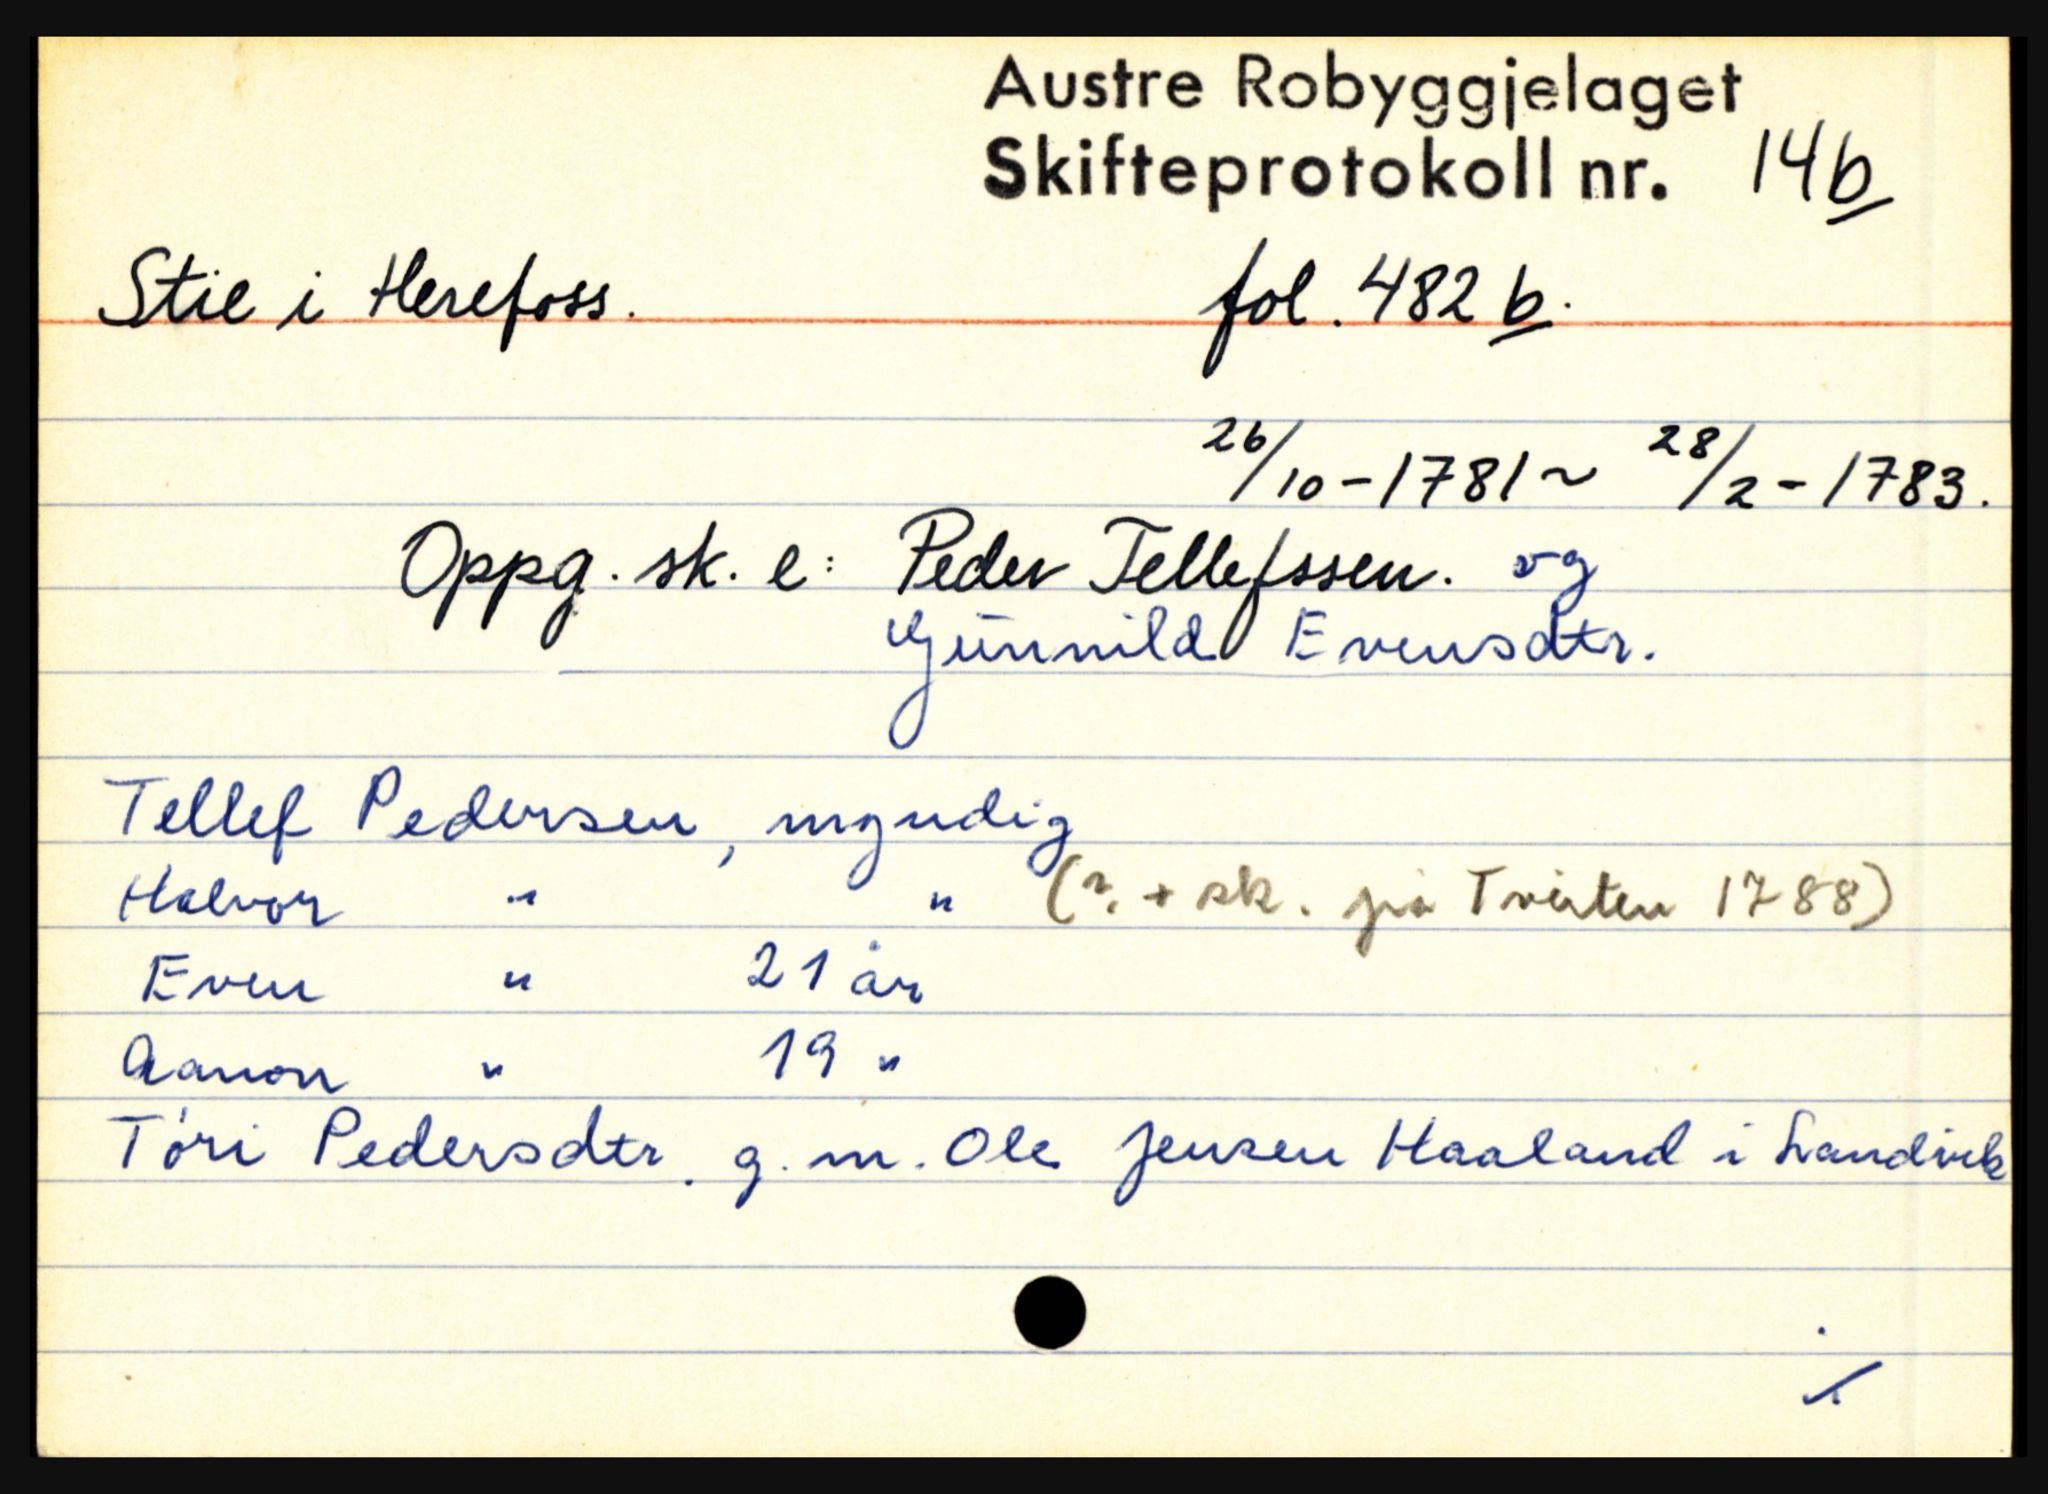 Austre Robyggjelaget
Skifteprotokoll nr. 14b
Stie i Herefoss. fol. 482 b.
26/10-1781 ~ 28/2-1783.
Oppg. sk. e: Peder Tellefssen. og
Gunnild Evensdtr.
Tellef Pedersen, myndig
Halvor " " (?. + sk. på Tveiten 1788)
Even " 21 år
Aanon " 19 "
Töri Pedersdtr. g. m. Ole Jensen Haaland i Landvik